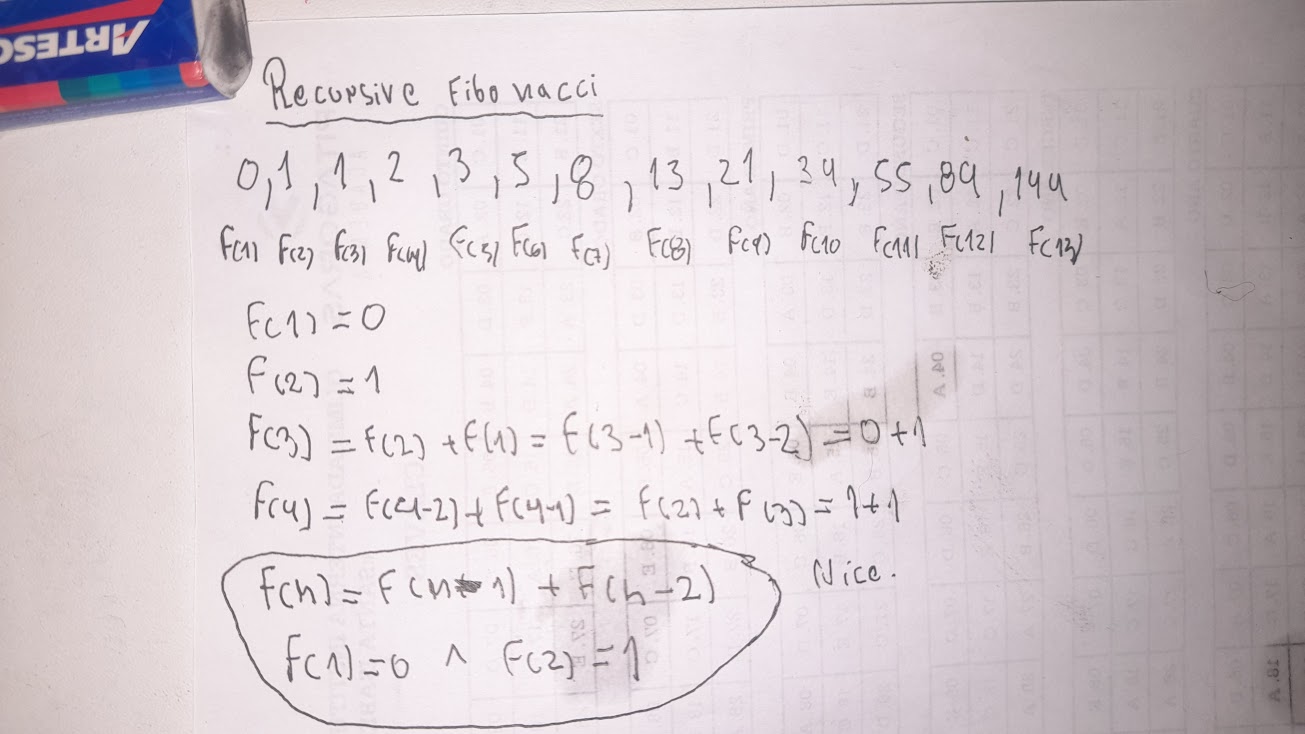 ARTESCO
Recursive Fibonacci
0, 1, 1, 2, 3, 5, 8, 13, 21, 34, 55, 89, 144
F(1) F(2) F(3) F(4) F(5) F(6) F(7) F(8) F(9) F(10 F(11) F(12) F(13)
F(1) = 0
F(2) = 1
F(3) = F(2) + F(1) = F(3-1) + F(3-2) = 0+1
F(4) = F(4-2) + F(4-1) = F(2) + F(3) = 1+1
F(n) = F(n-1) + F(n-2)
Nice.
F(1)=0 ^ F(2)=1